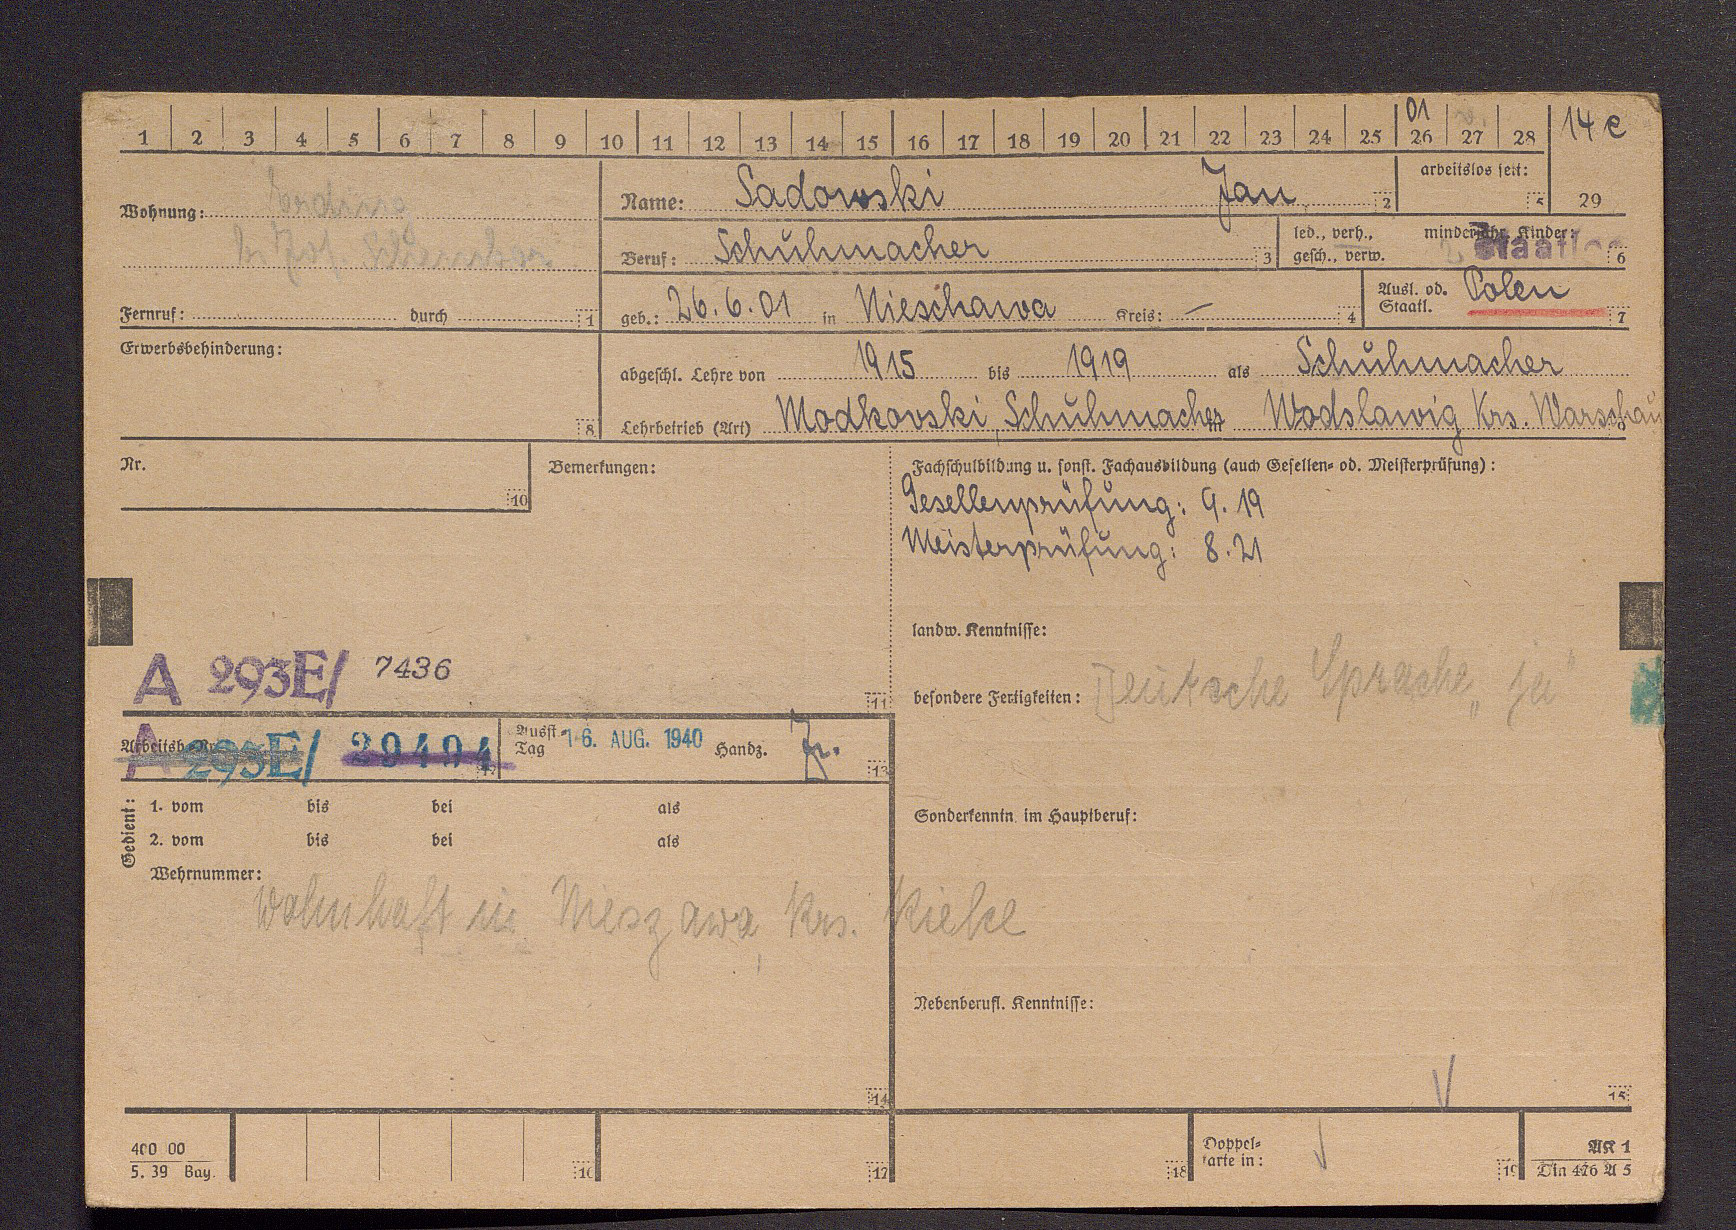 1 2 3 4 5 6 7 8 9 10 11 12 13 14 15 16 17 18 19 20 21 22 23 24 25 26 27 28
01
14 e
29
Wohnung: Erding
b/ Jos
Fernruf: durch 1
Name: Sadowski Jan 2
arbeitslos seit: 5
Beruf: Schuhmacher 3
led., verh., gesch., verw.
minderjähr. Kinder: 2 6
geb.: 26.6.01 in Nieschawa Kreis: — 4
Ausl. od. Staatl. Polen 7
Erwerbsbehinderung: 8
abgeschl. Lehre von 1915 bis 1919 als Schuhmacher
Lehrbetrieb (Art) Modkovski, Schuhmacher Wodslawig Krs. Warschau
Nr. 10
Bemerkungen:
A 293E/ 7436
11
Fachschulbildung u. sonst. Fachausbildung (auch Gesellen- od. Meisterprüfung):
Gesellenprüfung: 9.19
Meisterprüfung: 8.21
landw. Kenntnisse:
besondere Fertigkeiten: Deutsche Sprache „ja“
Arbeitsb. Nr.
A 293E/ 29494 12
Ausst.-Tag 16. AUG. 1940 Handz. 13
Gedient:
1. vom bis bei als
2. vom bis bei als
Wehrnummer:
wohnhaft in Nieszawa, Krs. Kielce
14
Sonderkenntn. im Hauptberuf:
Nebenberufl. Kenntnisse:
15
400 00
5. 39 Bay.
16
17
18
Doppelkarte in: 19
AK 1
Din 476 A 5